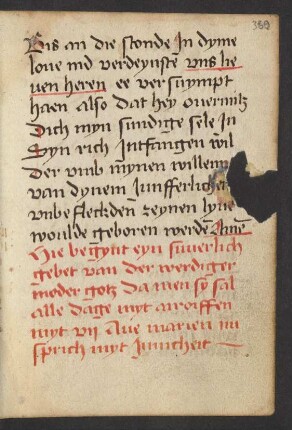 389
bis an die stonde In dyme
loue vnd verdeynste vns lie
uen heren ee ver suympt
haen also dat hey ouermitz
Dich myn sundige sele In
Syn rich Intfangen wil
Der vmb mynen willenn
van dynem Junfferlichen
vnbefleckden reynen lyue
woulde geboren werde Amē
Hie begynt eyn suuerlich
gebet van der werdiger
moder gotz da men sy sal
alle dage myt aroiffen
myt vij Aue marien nu
sprich myt Innicheit